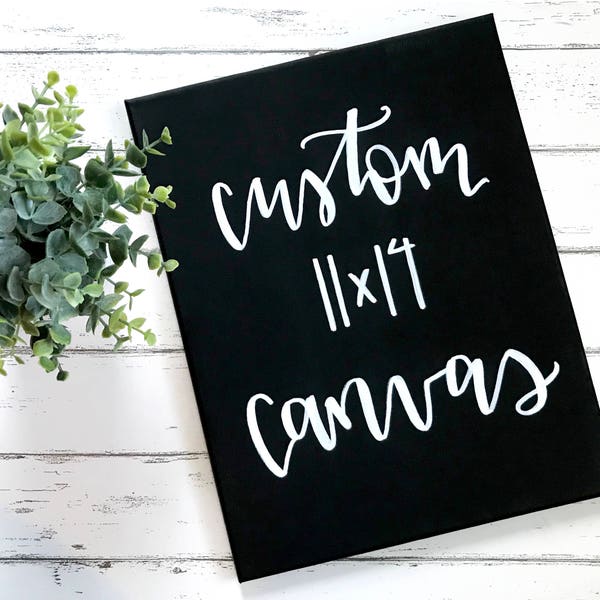 custom
11x14
canvas